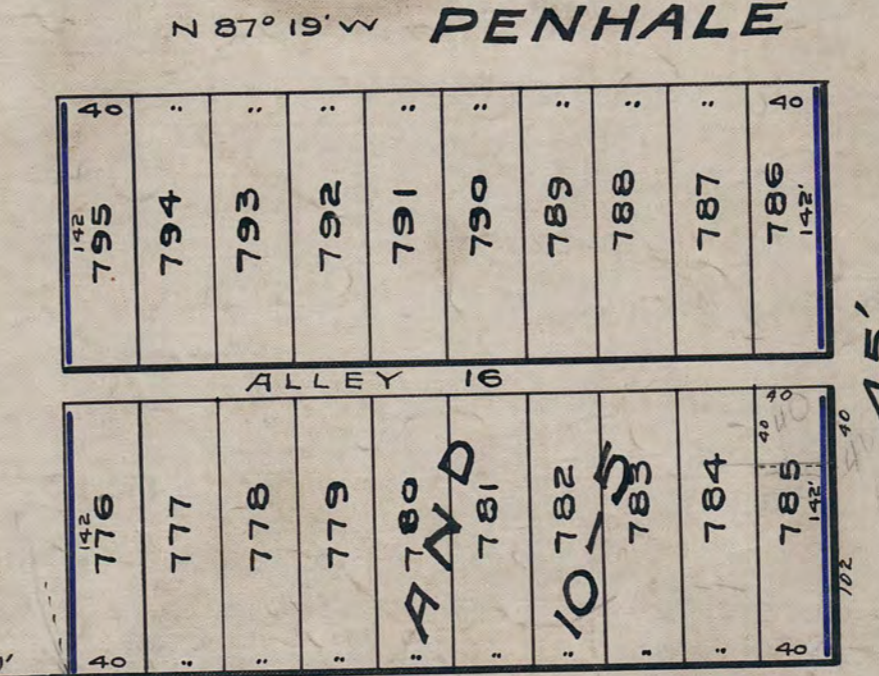 N 87° 19' W PENHALE
40 " " " " " " " " 40
142 795 794 793 792 791 790 789 788 787 786 142'
ALLEY 16
40
40 40
40
142 776 777 778 779 780 781 782 783 784 785 142'
AND 10-5
102
40 " " " " " " " " 40